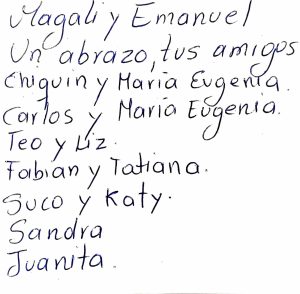 Magali y Emanuel
Un abrazo, tus amigos
Chiquin y Maria Eugenia.
Carlos y Maria Eugenia.
Teo y Liz.
Fabian y Tatiana.
Suco y Katy.
Sandra
Juanita.